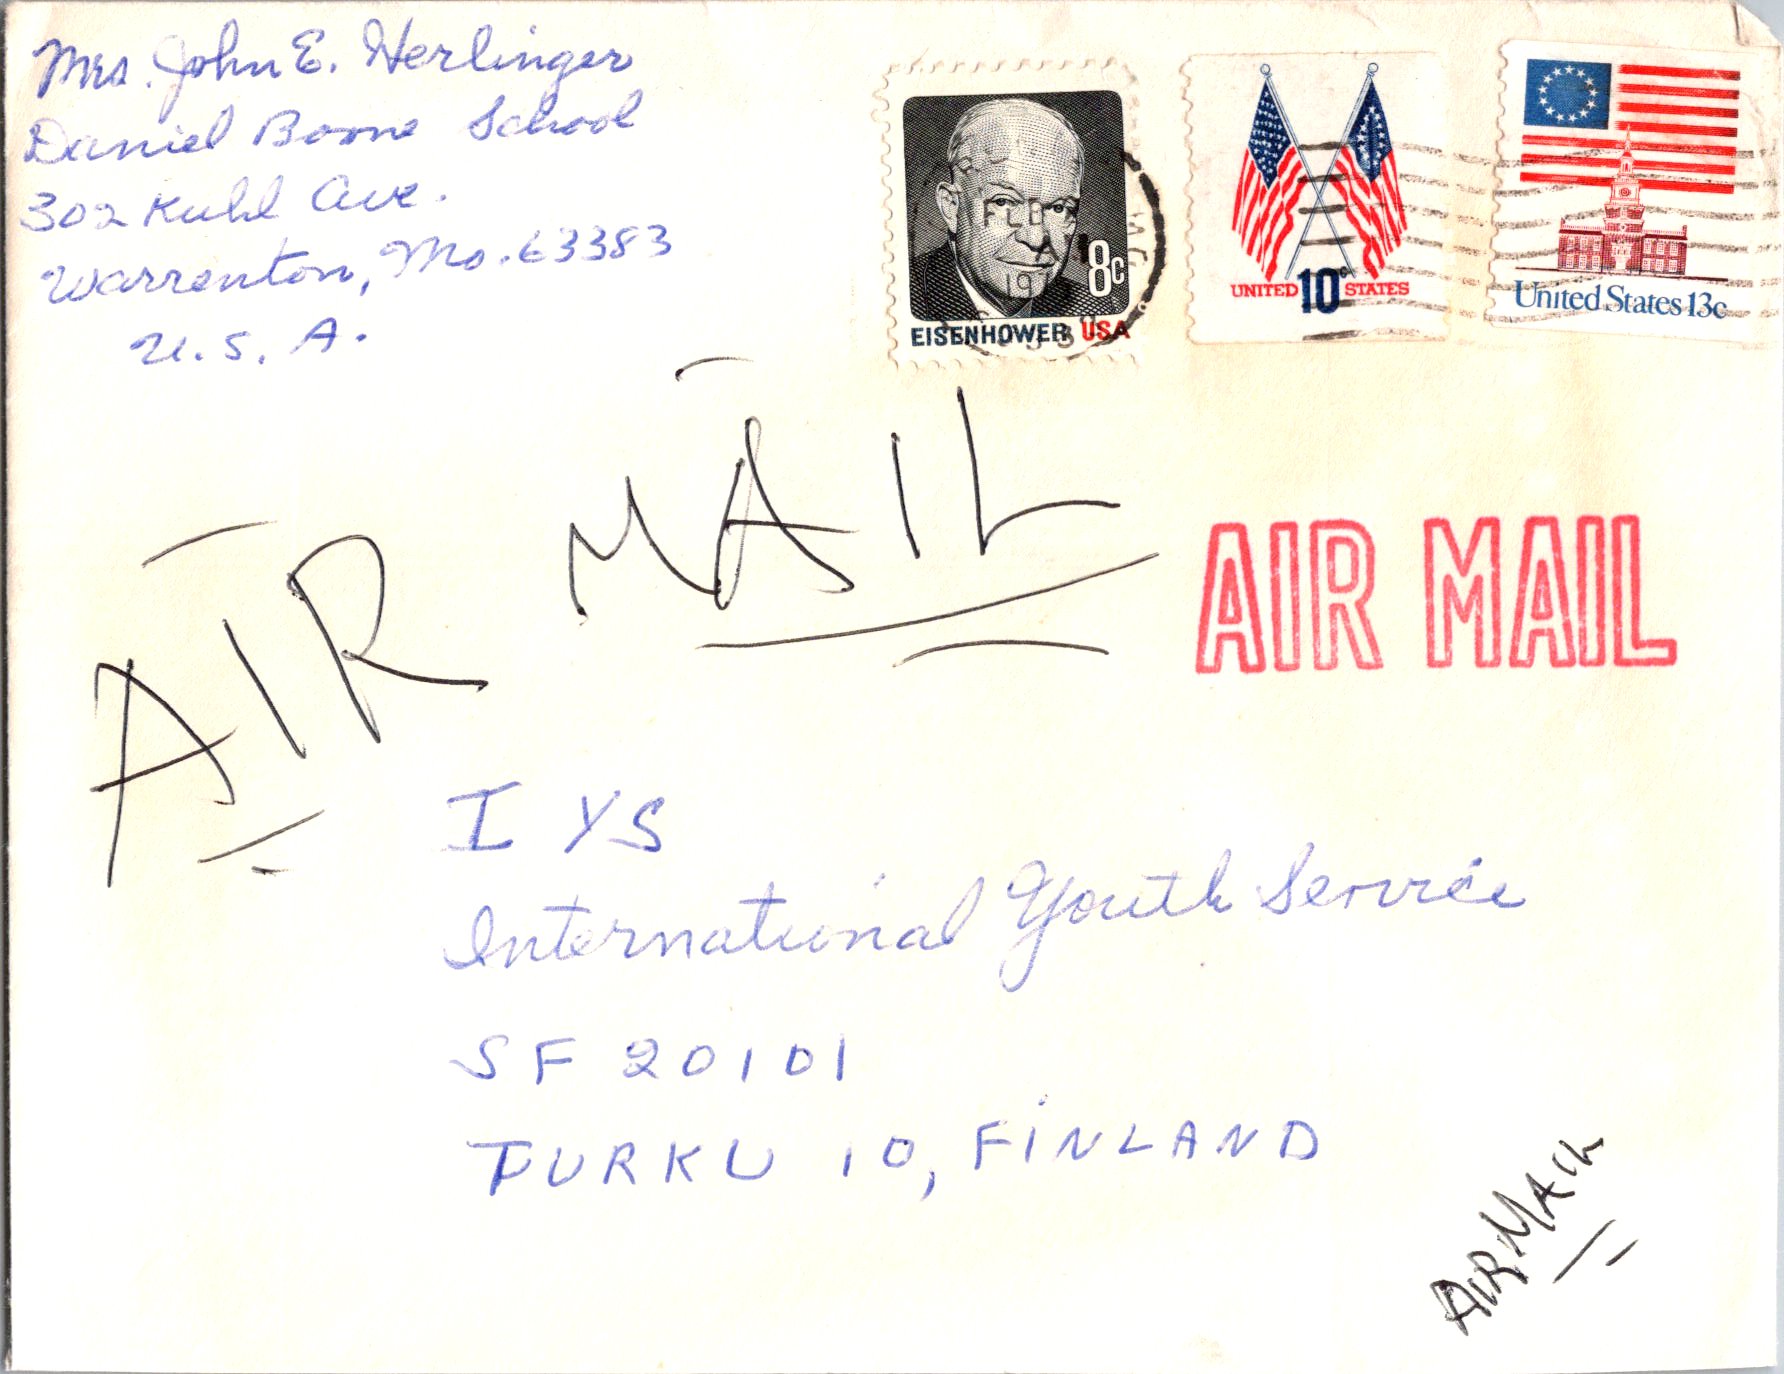 Mrs. John E. Herlinger
Daniel Boone School
302 Kuhl Ave.
Warrenton, Mo. 63383
U.S.A.
8c
EISENHOWER USA
UNITED 10c STATES
United States 13c
AIR MAIL
AIR MAIL
I YS
International Youth Service
SF 20101
TURKU 10, FINLAND
AIRMAIL